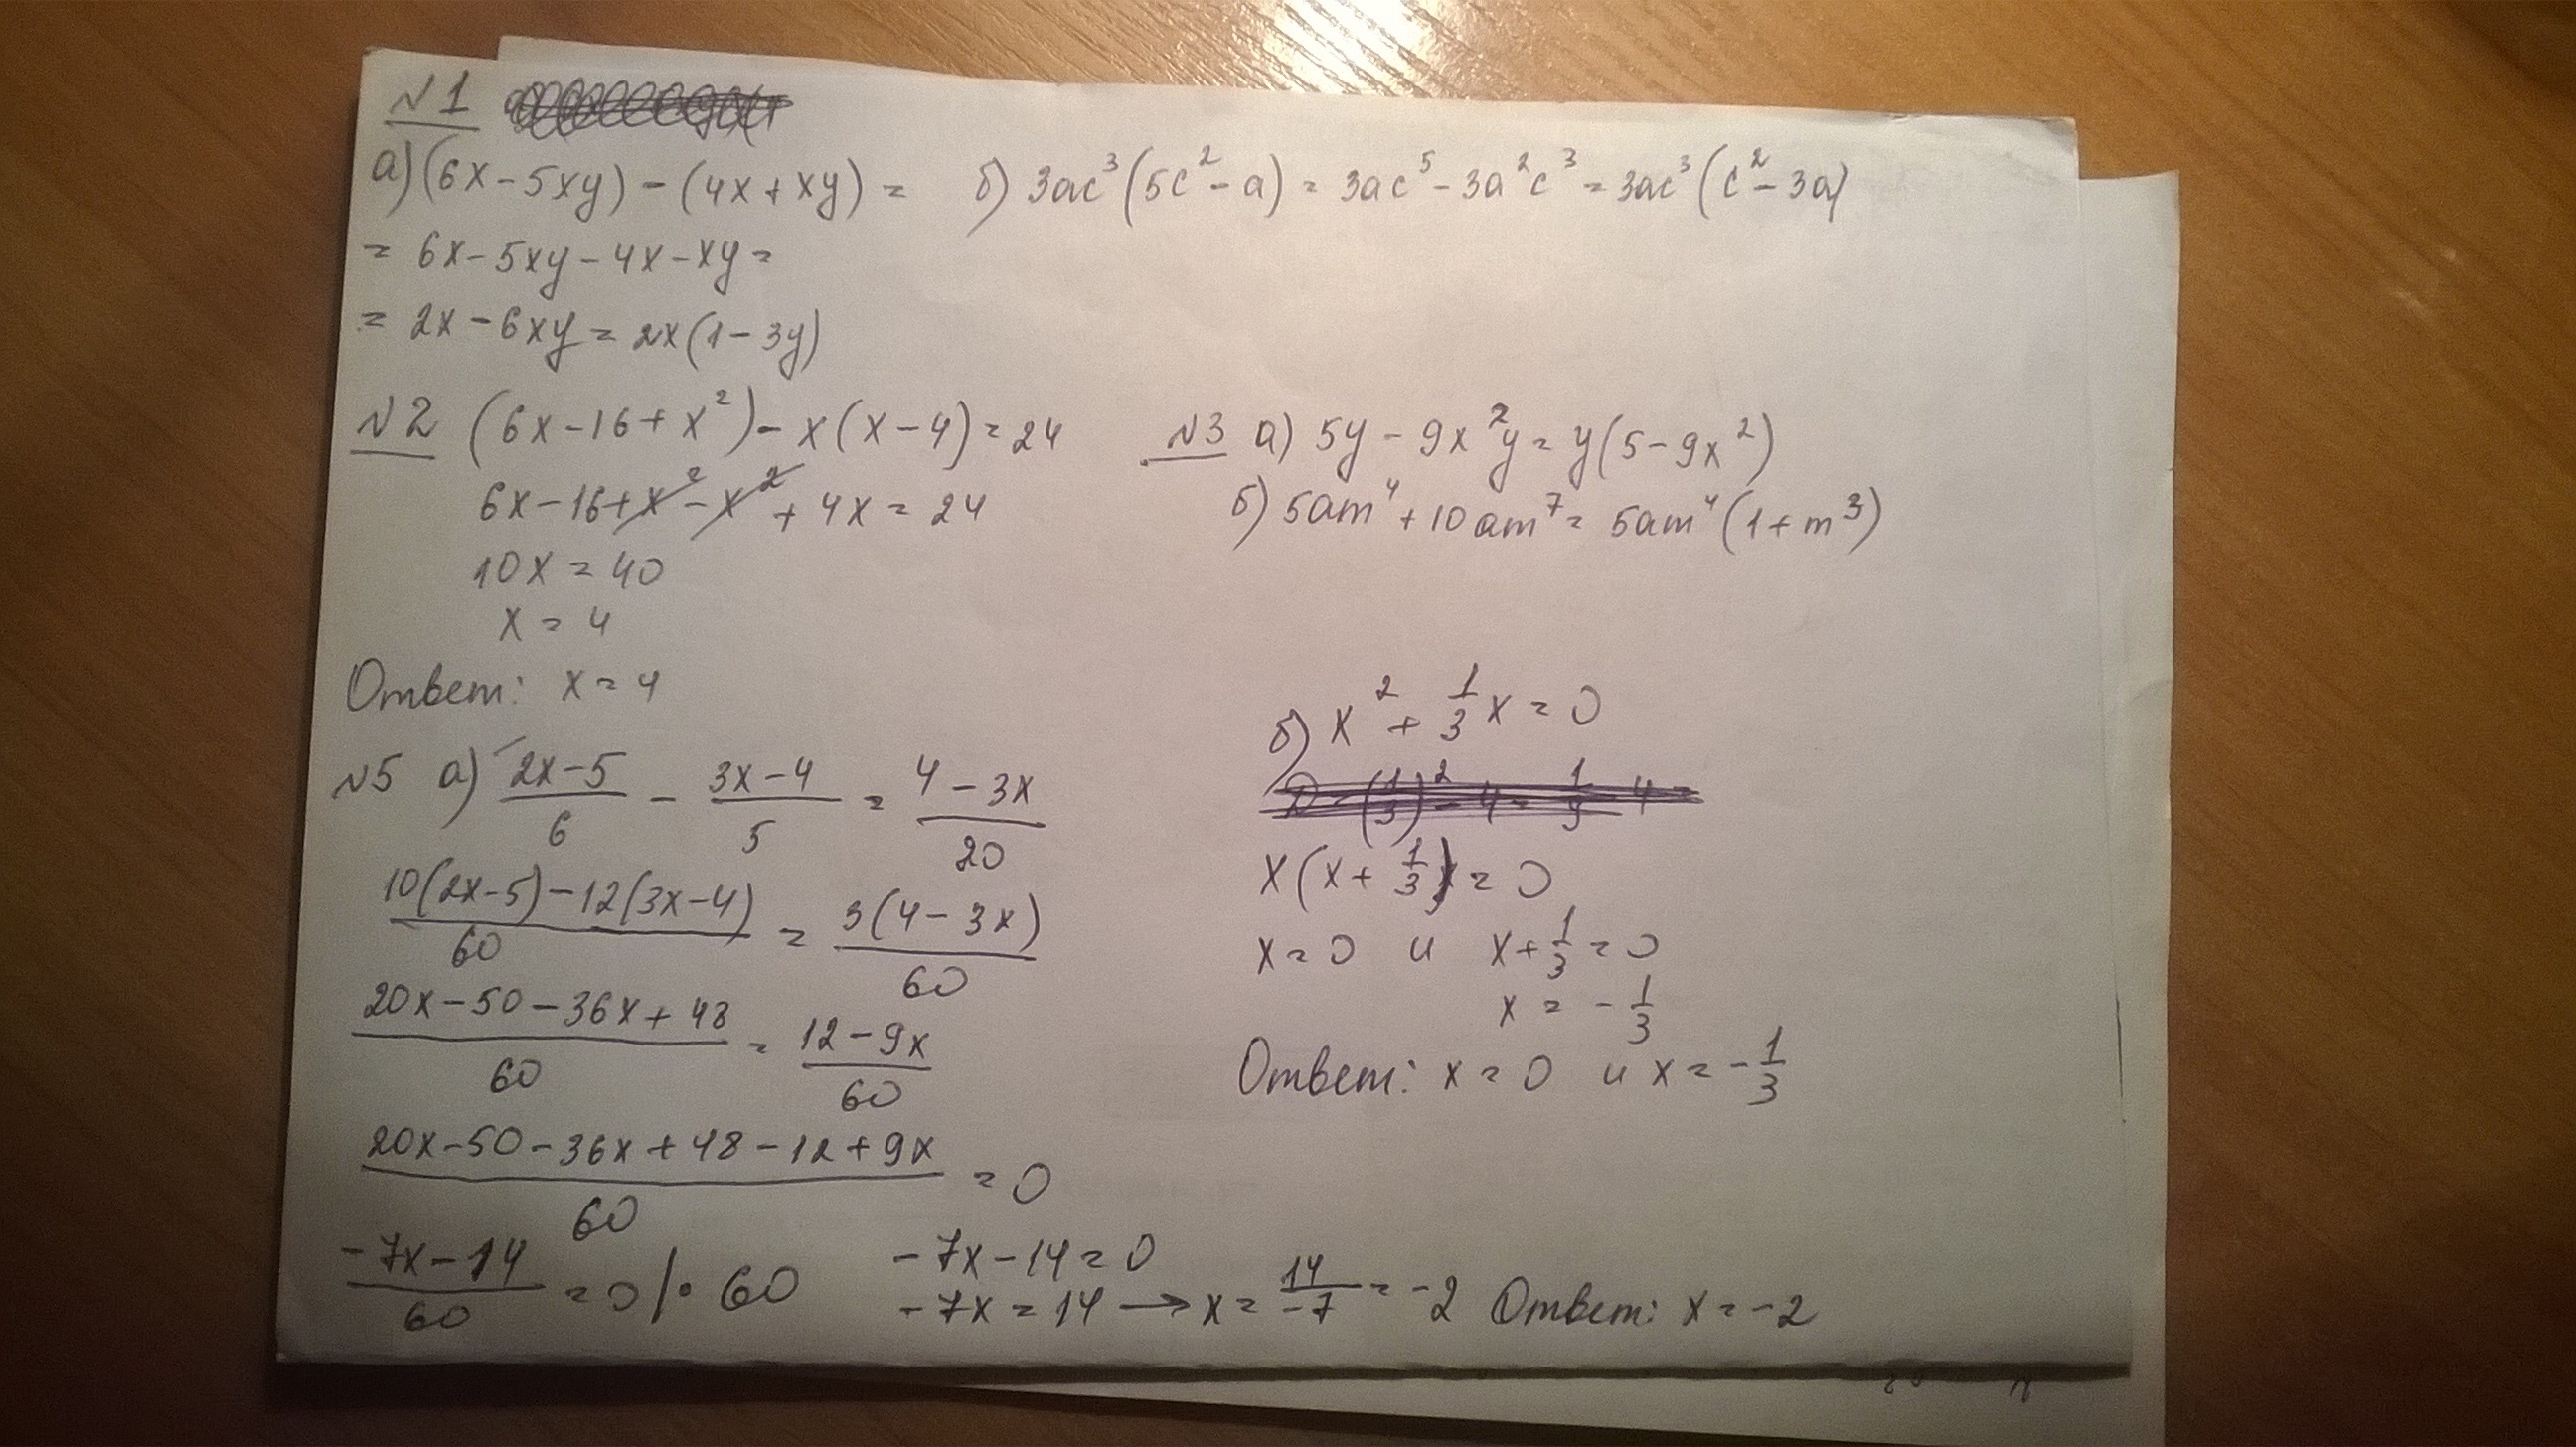 №1
а) (6x - 5xy) - (4x + xy) =
= 6x - 5xy - 4x - xy =
= 2x - 6xy = 2x(1 - 3y)
б) 3ac³(5c² - a) = 3ac⁵ - 3a²c³ = 3ac³(c² - 3a)
№2 (6x - 16 + x²) - x(x - 4) = 24
6x - 16 + x² - x² + 4x = 24
10x = 40
x = 4
Ответ: x = 4
№3 а) 5y - 9x²y = y(5 - 9x²)
б) 5am⁴ + 10am⁷ = 5am⁴(1 + m³)
№5 а) (2x-5)/6 - (3x-4)/5 = (4-3x)/20
(10(2x-5) - 12(3x-4))/60 = 3(4-3x)/60
(20x - 50 - 36x + 48)/60 = (12 - 9x)/60
(20x - 50 - 36x + 48 - 12 + 9x)/60 = 0
(-7x - 14)/60 = 0 | · 60
-7x - 14 = 0
-7x = 14 → x = 14/-7 = -2 Ответ: x = -2
б) x² + 1/3 x = 0
D = (1/3)² - 4 = 1/9 - 4 =
x(x + 1/3) = 0
x = 0 и x + 1/3 = 0
x = - 1/3
Ответ: x = 0 и x = - 1/3